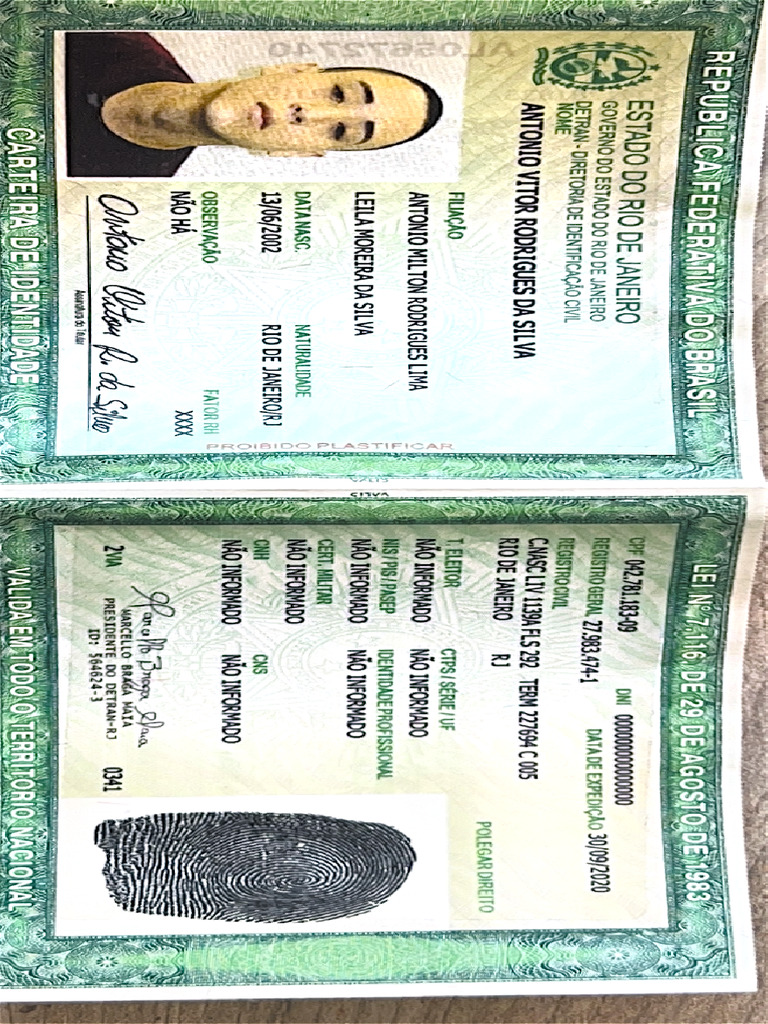 REPÚBLICA FEDERATIVA DO BRASIL
ESTADO DO RIO DE JANEIRO
GOVERNO DO ESTADO DO RIO DE JANEIRO
DETRAN - DIRETORIA DE IDENTIFICAÇÃO CIVIL
NOME
ANTONIO VITOR RODRIGUES DA SILVA
AL05672740
FILIAÇÃO
ANTONIO MILTON RODRIGUES LIMA
LEILA MOREIRA DA SILVA
DATA NASC. NATURALIDADE
13/06/2002 RIO DE JANEIRO/RJ
OBSERVAÇÃO FATOR RH
NÃO HÁ XXXX
Antonio Vitor R. da Silva
Assinatura do Titular
PROIBIDO PLASTIFICAR
CARTEIRA DE IDENTIDADE
LEI Nº 7.116, DE 29 DE AGOSTO DE 1983
CPF 042.781.183-09 DNI 0000000000000
REGISTRO GERAL 27.983.474-1 DATA DE EXPEDIÇÃO 30/09/2020
REGISTRO CIVIL
C.NASC LIV 1139A FLS 292 TERM 227694 C 005
RIO DE JANEIRO RJ
POLEGAR DIREITO
T. ELEITOR CTPS / SÉRIE / UF
NÃO INFORMADO NÃO INFORMADO
NIS / PIS / PASEP IDENTIDADE PROFISSIONAL
NÃO INFORMADO NÃO INFORMADO
CERT. MILITAR
NÃO INFORMADO
CNH CNS
NÃO INFORMADO NÃO INFORMADO
MARCELLO BRAGA MAIA
PRESIDENTE DO DETRAN-RJ
ID: 564624-3
2 VIA 0341
VALIDA EM TODO O TERRITORIO NACIONAL